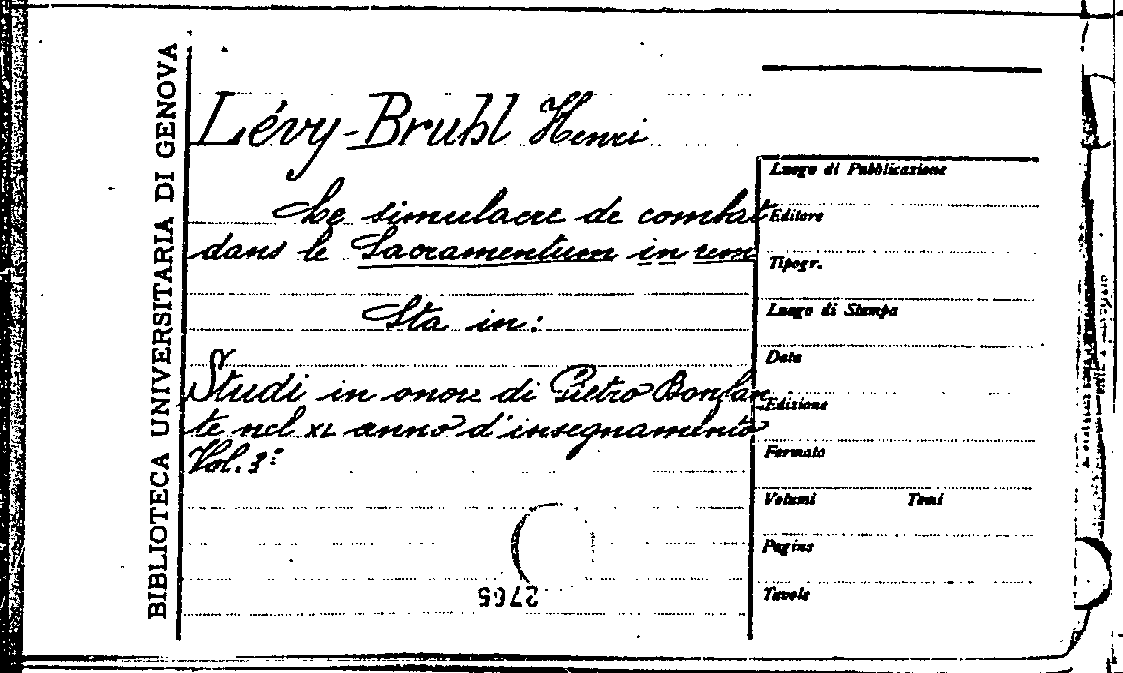 BIBLIOTECA UNIVERSITARIA DI GENOVA
Lévy-Bruhl Henri
Le simulacre de combat
dans le Sacramentum in rem
Sta in:
Studi in onore di Pietro Bonfan
te nel XL anno d'insegnamento
Vol. 3º
2765
Luogo di Pubblicazione
Editore
Tipogr.
Luogo di Stampa
Data
Edizione
Formato
Volumi Tomi
Pagine
Tavole